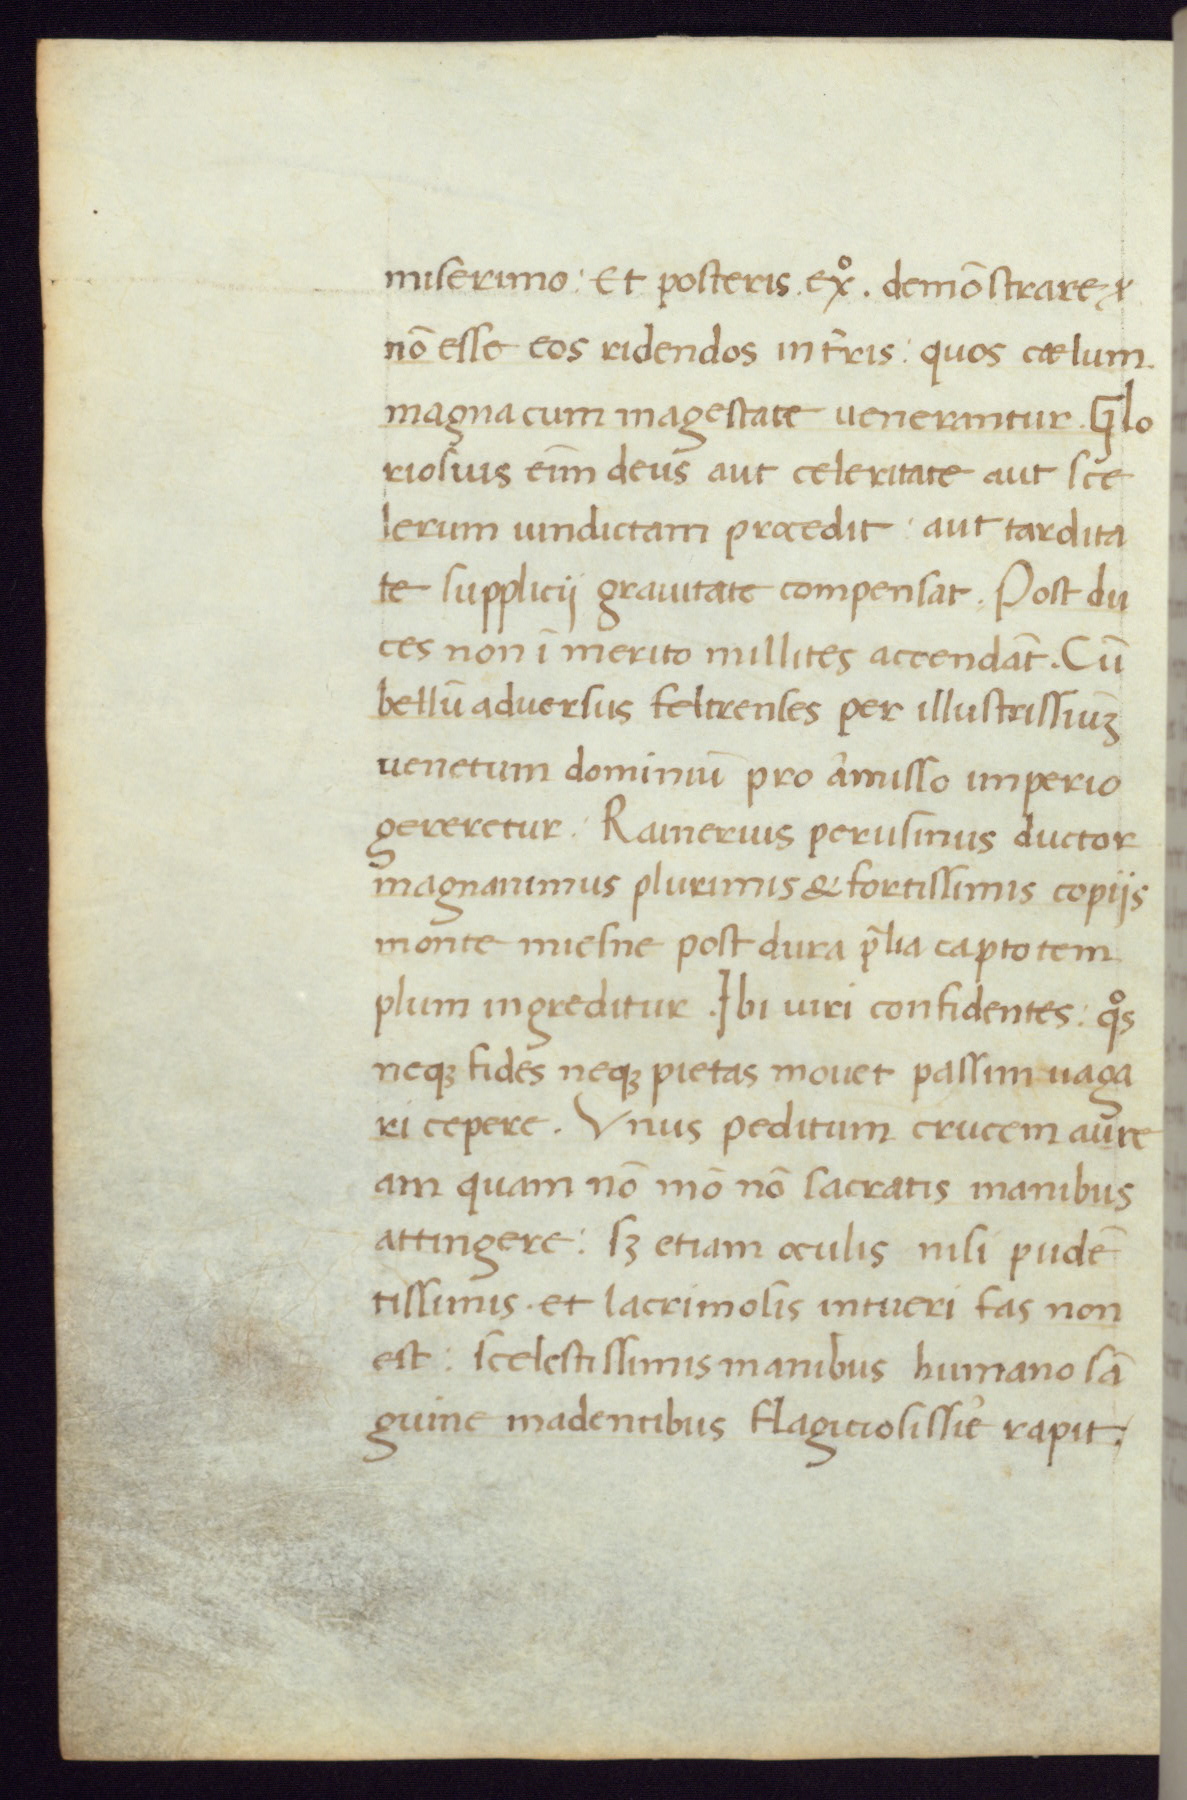 miserimo: Et posteris .exͦ. demōstrare &
nō esse eos ridendos in tr̄is: quos cælum
magna cum magestate uenerantur. Glo
riosuis eim̄ deus aut celeritate aut sce
lerum uindictam procedit: aut tardita
te supplicij grauitate compensat. Post du
ces non ī merito millites accendāt. Cū
bellū aduersus feltrenses per illustrissiuꝫ
uenetum dominiū pro amisso imperio
gereretur: Rainerius perusinus ductor
magnanimus plurimis & fortissimis copijs
monte miesne post dura p̄lia capto tem
plum ingreditur. Ibi uiri confidentes: qͦs
neqꝫ fides neqꝫ pietas mouet passim uaga
ri cepere. Vnus peditum crucem aure
am quam nō mō nō sacratis manibus
attingere: sꝫ etiam oculis nisi pudē
tissimis et lacrimosis intueri fas non
est: scelestissimis manibus humano sā
guine madentibus flagitiosissie᷒ rapit: